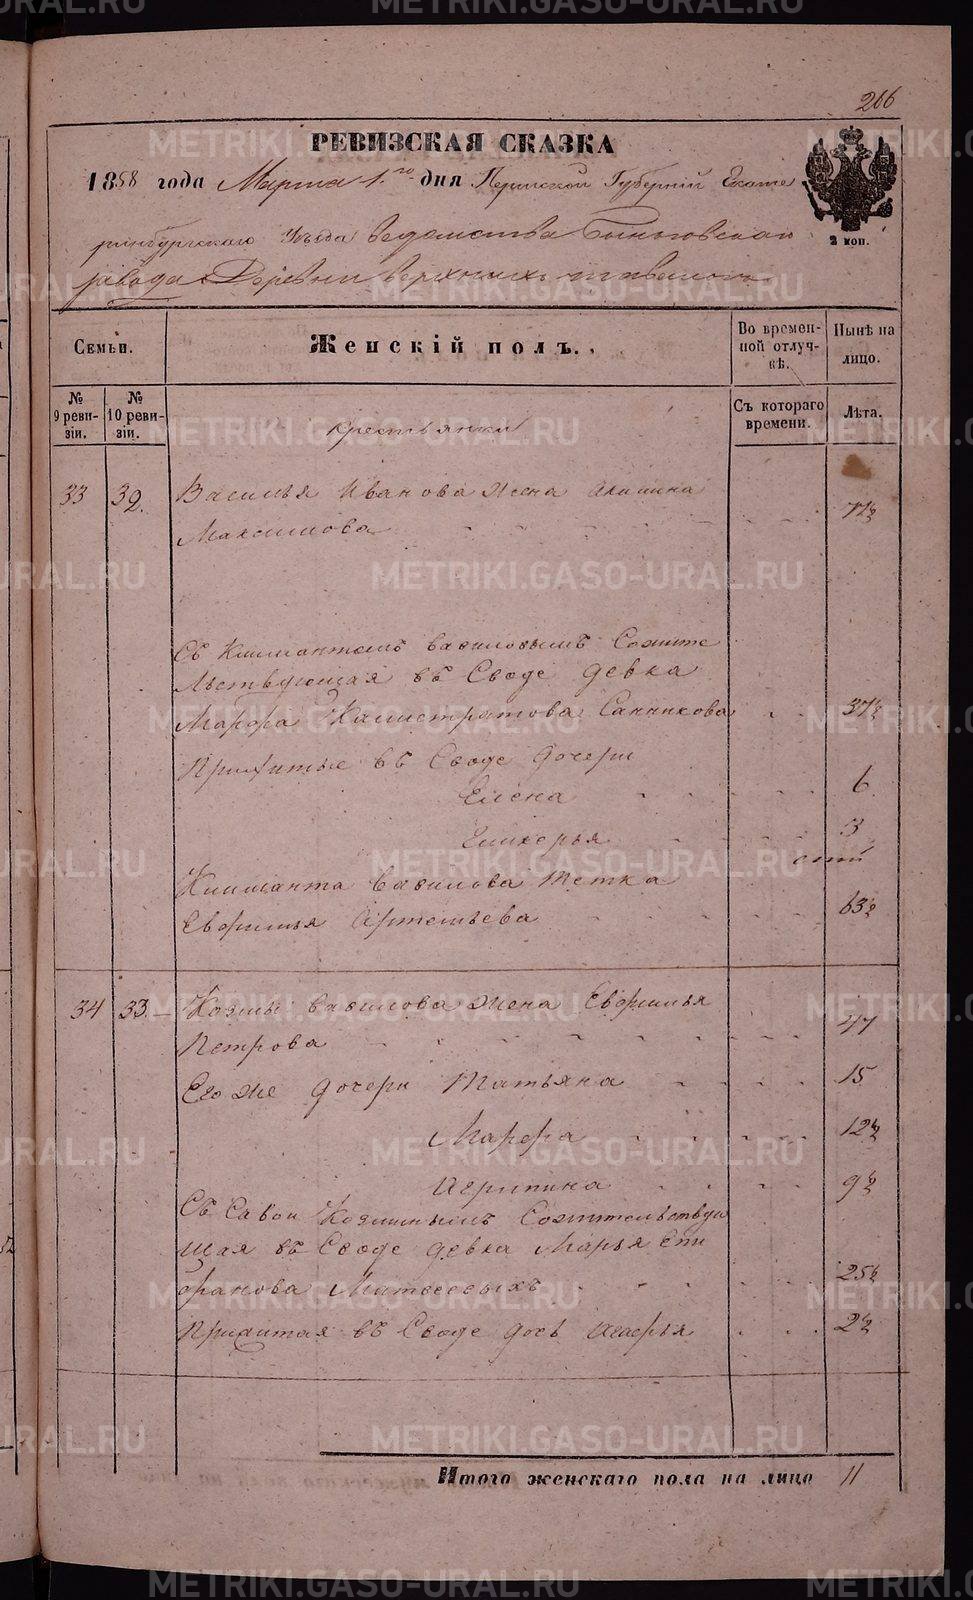 266
РЕВИЗСКАЯ СКАЗКА
1858 года Марта 1го дня Пермской Губерніи Екате
ринбургскаго Уѣзда ведомства Быньговскаго
завода Деревни Верхнихъ
2 коп.
Семьи.
Женскій полъ.
Во времен-
ной отлуч-
кѣ.
Нынѣ на
лицо.
№
9 реви-
зіи.
№
10 реви-
зіи.
крестьянки
Съ котораго
времени.
Лѣта.
33 32. Василья Иванова жена Акилина
Максимова
Съ Климантомъ Вавиловымъ Сожите
льствующая въ Своде девка
Марфа Калистратова Санникова 37½
Прижитые въ Своде дочери
Елена 6
Гликерья 3
Климанта Вавилова тетка
Евфимья Артемьева 63½
34 33. Козмы Вавилова жена Евфимья
Петрова 47
Его же дочери Татьяна 15
Марфа 12½
Агрипина 9½
Съ Савои Козминымъ Сожительствую
щая въ Своде девка Марья Епи
фанова 25½
Прижитая въ Своде дочь Агафья 2½
Итого женскаго пола на лицо 11
METRIKI.GASO-URAL.RU